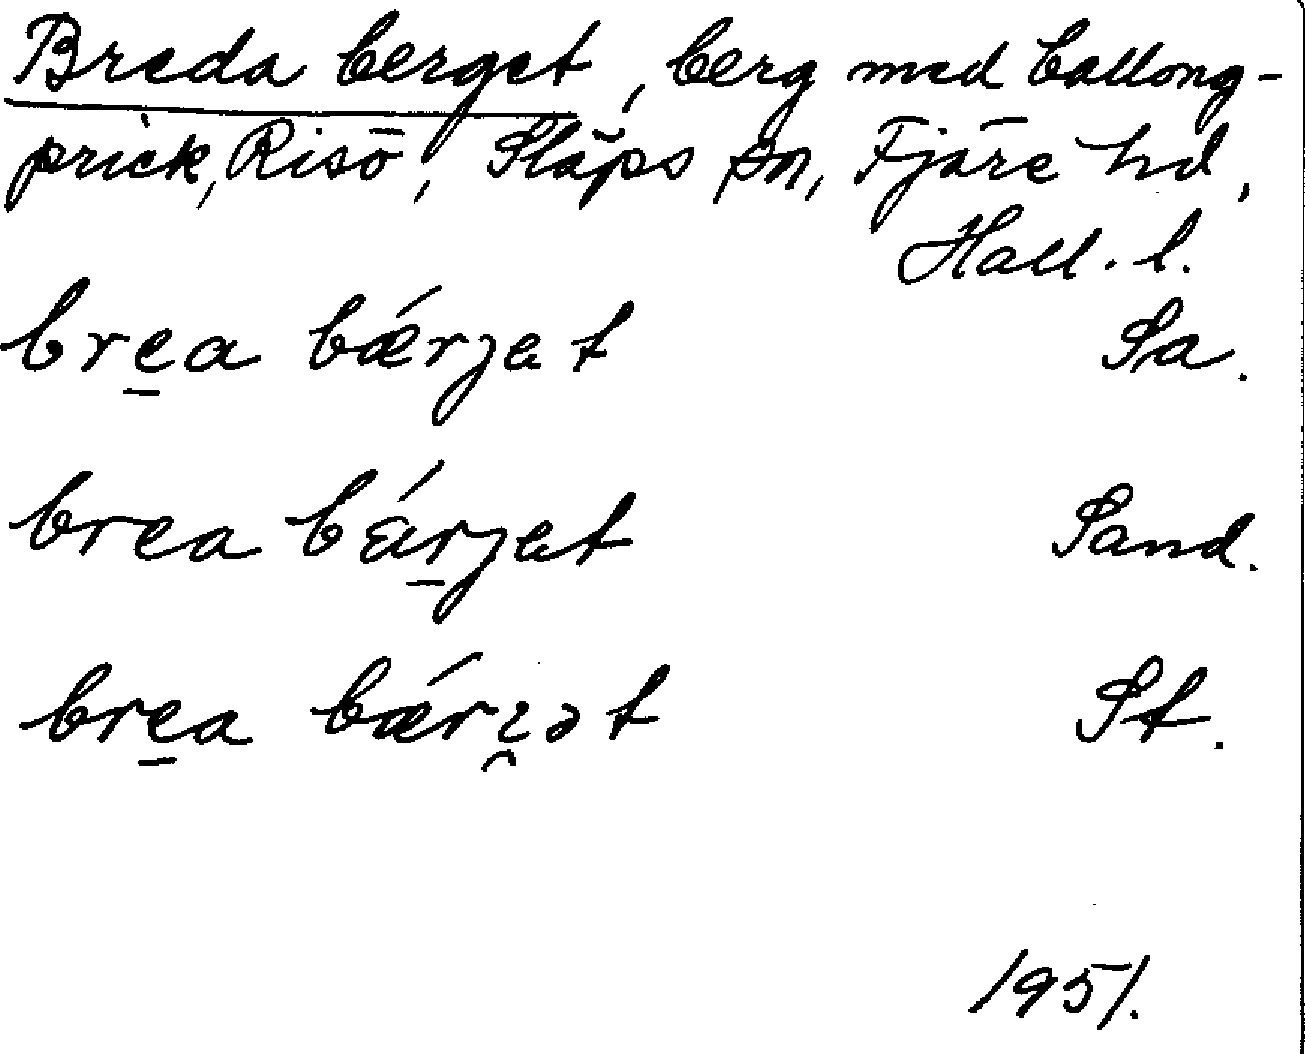 Breda berget, berg med ballong-
prick, Risö, Släps sn, Fjäre hd,
Hall. l.
brea bǽrjet Sa.
brea bárjet Sand.
brea bǽrjət St.
1951.